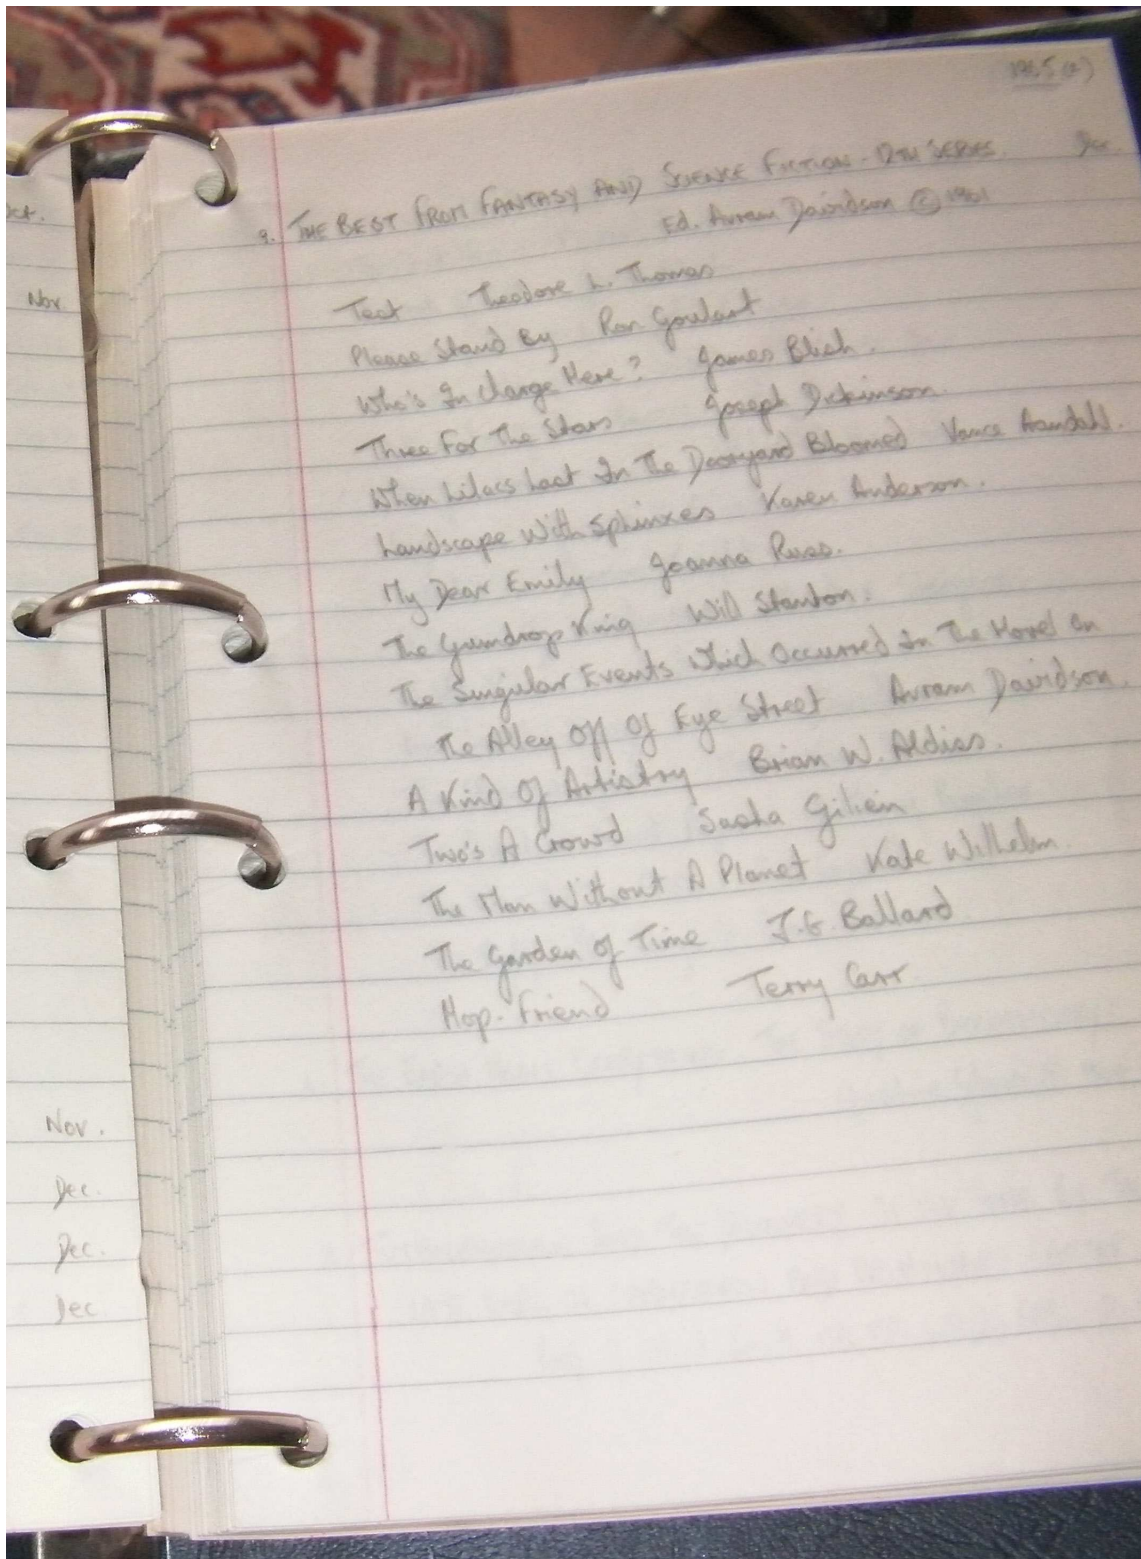 Oct.
Nov.
Nov.
Dec.
Dec.
Dec
1965 (2)
9. THE BEST FROM FANTASY AND SCIENCE FICTION - 12TH SERIES. Dec.
Ed. Avram Davidson © 1961
Test Theodore L. Thomas
Please Stand By Ron Goulart
Who's In Charge Here? James Blish.
Three For The Stars Joseph Dickinson.
When Lilacs Last In The Dooryard Bloomed Vance Aandahl.
Landscape With Sphinxes Karen Anderson.
My Dear Emily Joanna Russ.
The Gumdrop King Will Stanton.
The Singular Events Which Occurred In The Hovel On
The Alley Off Of Eye Street Avram Davidson.
A Kind Of Artistry Brian W. Aldiss.
Two's A Crowd Sasha Gilien
The Man Without A Planet Kate Wilhelm.
The Garden of Time J.G. Ballard
Hop-Friend Terry Carr.